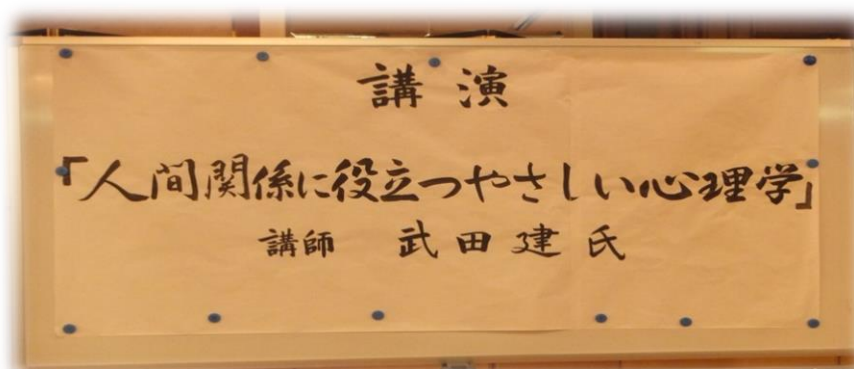 講演
「人間関係に役立つやさしい心理学」
講師 武田建氏